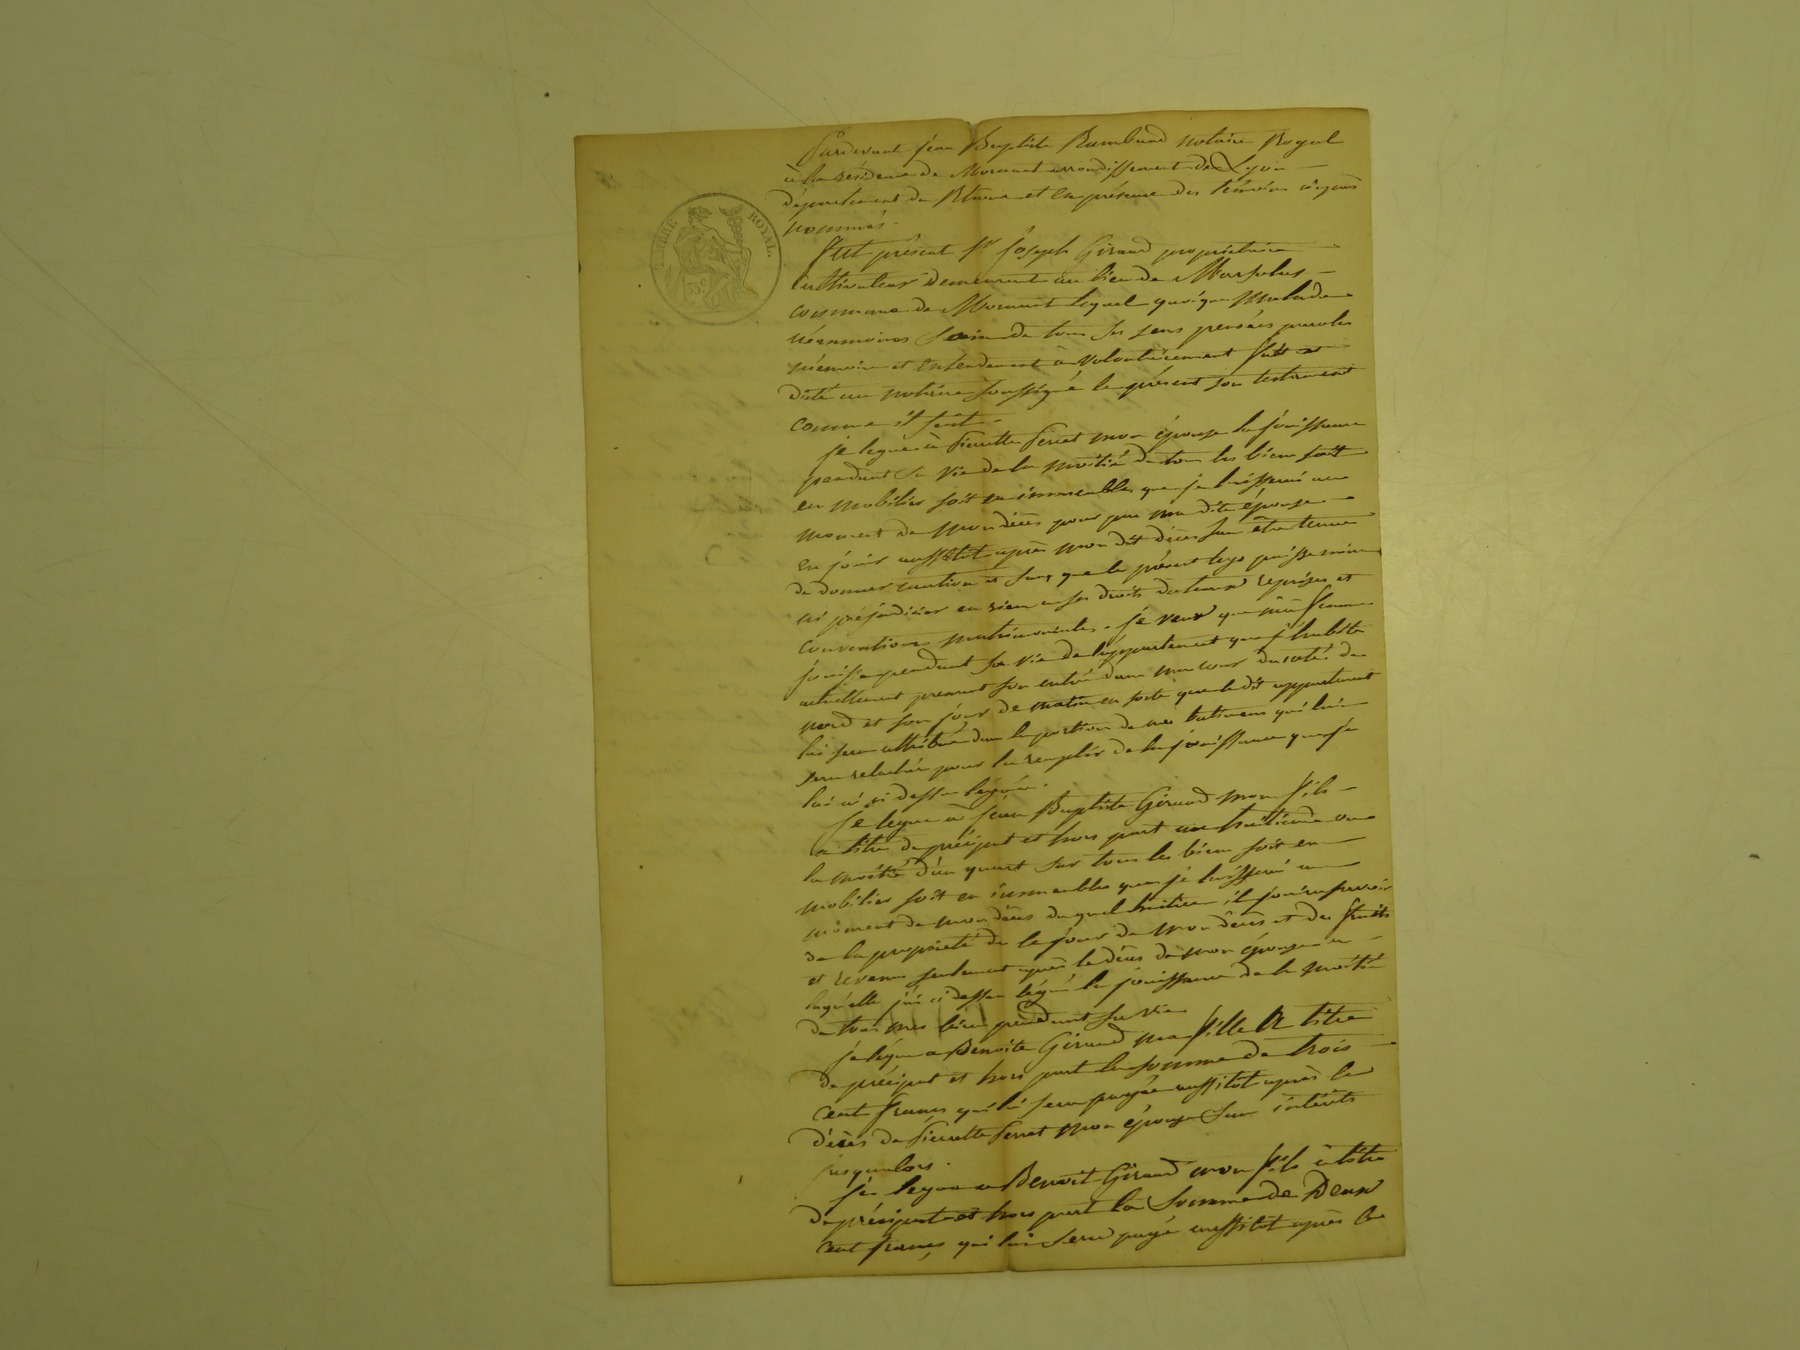 TIMBRE ROYAL
Pardevant jean Baptiste Rambaud notaire Royal
à la résidence de Mornant arrondissement de Lyon
département du Rhône et en présence des témoins cy après
nommés.
Fut présent Sr joseph Giraud propriétaire
cultivateur demeurant au lieu de
commune de Mornant lequel quoique malade
néanmoins sain de tous ses sens pensées paroles
mémoire et entendement a volontairement fait et
dicté au notaire soussigné le présent son testament
comme il suit.
je legue à Pierrette Ferret mon épouse la jouissance
pendant sa vie de la moitié de tous les biens soit
en mobilier soit en immeubles que je laisserai au
moment de mon décès pour par ma dite épouse
en jouir aussitôt après mon dit décès sans être tenue
de donner caution et sans que le présent legs puisse nuire
ni préjudicier en rien a ses droits dotaux reprises et
conventions matrimoniales. je veux que ma femme
jouisse pendant sa vie de l'appartement que j'habite
actuellement prenant son entrée dans ma cour du coté de
nord et son jour de matin en sorte que le dit appartement
lui sera attribué dans la portion de mes batimens qui lui
sera relachée pour la remplir de la jouissance que je
lui ai ci dessus léguée.
je legue a jean Baptiste Giraud mon fils
a titre de préciput et hors part un huitieme ou
la moitié d'un quart sur tous les biens soit en
mobilier soit en immeubles que je laisserai au
moment de mon décès duquel huitieme il jouira savoir
de la propriété dès le jour de mon décès et des fruits
et revenus seulement après le décès de mon épouse a
laquelle j'ai ci dessus légué la jouissance de la moitié
de tous mes biens pendant sa vie
je légue a Benoite Giraud ma fille a titre
de préciput et hors part la somme de trois
cent francs qui lui sera payée aussitot après le
décès de Pierrette Ferret mon épouse sans intérêts
jusqu'alors.
je legue a Benoit Giraud mon fils à titre
de préciput et hors part la somme de Deux
cent francs, qui lui sera payé aussitôt après le